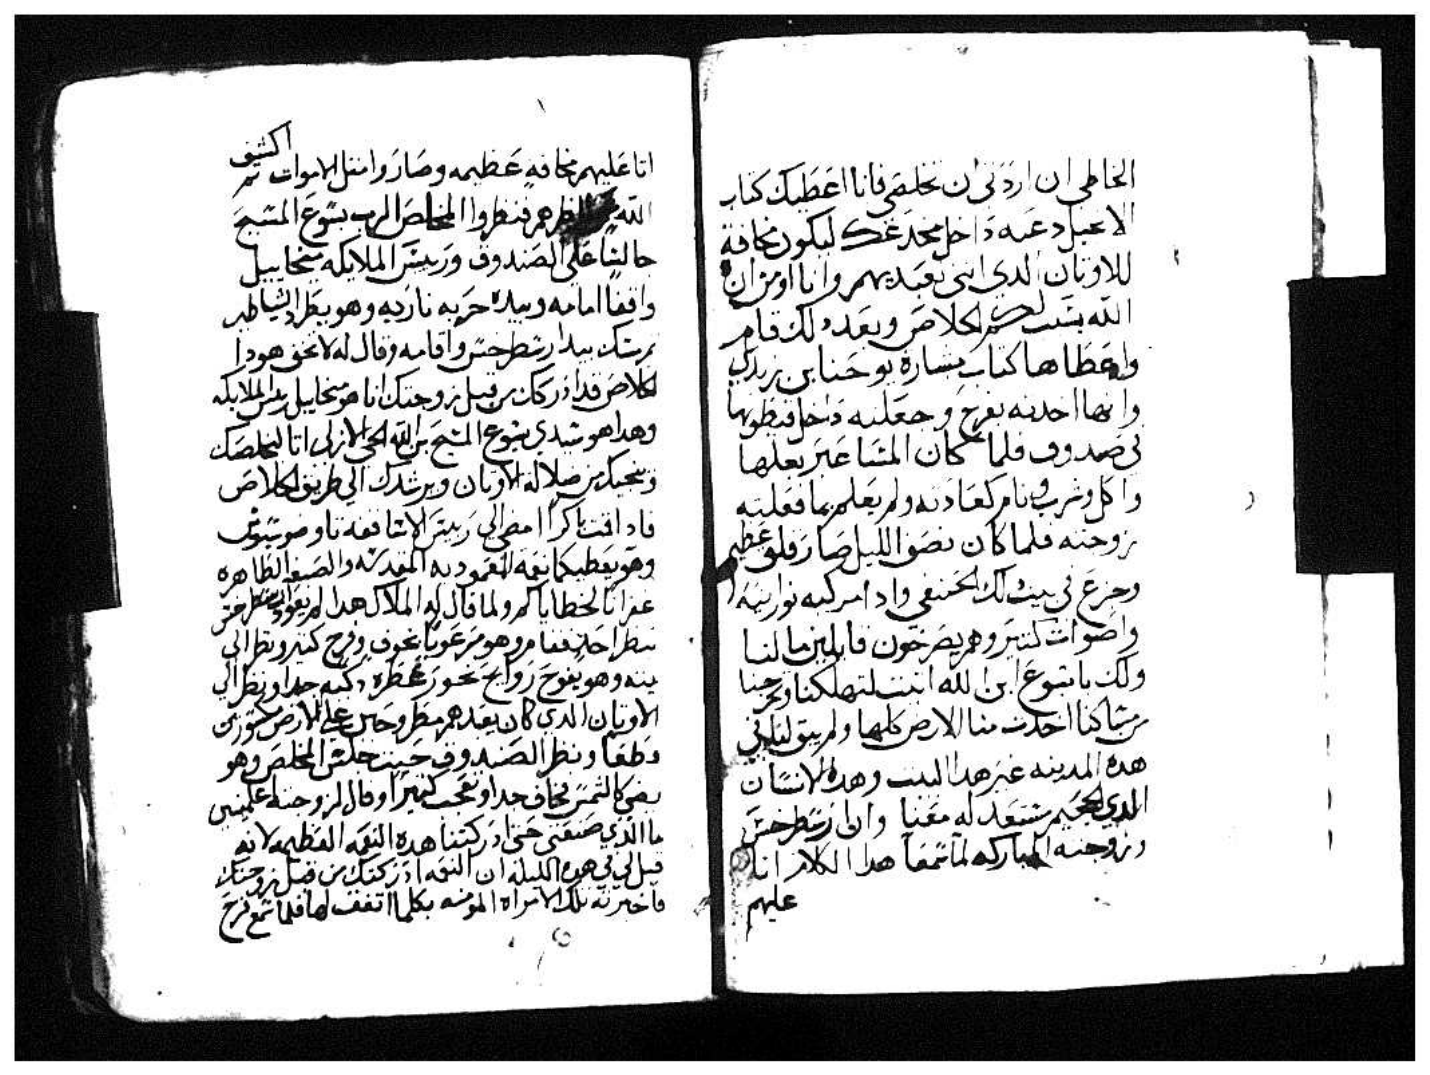 الخاطي ان اردتي ان تخلصي فانا اعطيك كتاب
الانجيل دعيه داخل مخدعك ليكون مخافة
للاوتان الدي انتي تعبديهم وانا اومن ان
الله يسبب لكم الخلاص وبعد دلك قام
واعطاها كتاب بشارة يوحنا ابن زبدي
وانها اخدته بفرح وجعلته داخل قيطونها
في صندوق فلما كان المسا عبر بعلها
واكل وشرب ونام كعادته ولم يعلم بما فعلته
زوجته فلما كان نصف الليل صار قلق عظيم
وجزع في بيت دلك الحنفي وادا مركبه نورانيه
واصوات كتير وهم يصرخون قايلين ما لنا
ولك يا يسوع ابن الله اتيت لتهلكنا وتخرجنا
من مساكنا اخدت منا الارض كلها ولم يبق لنا في
هده المدينه غير هدا البيت وهده الانسان
الدي الجحيم مستعد له معنا وان ارسطرخس
وزوجته المباركه لما سمعا هدا الكلام اتا
عليهم
اتا عليهم مخافه عظيمه وصاروا متل الاموات تم اكشف
الله نظرهم فنظروا المخلص الرب يسوع المسيح
جالسا على الصندوق وريس الملايكه ميخاييل
واقفا امامه وبيده حربه ناريه وهو يطرد الشياطين
تم مسك بيد ارسطرخس واقامه وقال له لا تخف هودا
الخلاص قد ادركك من قبل زوجتك انا هو ميخاييل ريس الملايكه
وهدا هو سيدي يسوع المسيح ابن الله الحي الازلي اتا ليخلصك
وينجيك من ضلالة الاوتان ويرشدك الي طريق الخلاص
فادا قمت باكرا امضي الي ريس الاساقفه تاوضوسيوس
وهو يعطيكما نعمة المعموديه المقدسه والصبغه الطاهره
غفرانا لخطاياكم ولما قال له الملاك هدا لم يعود ارسطرخس
ينظر احد فقام وهو مرعوبا بخوف وفرح كتير ونظر الي
بيته وهو يفوح روايح بخور عطره دكيه جدا ونظر الي
الاوتان الدي كان يعبدهم مطروحين علي الارض مكسورين
قطعا ونظر الصندوق حيت جلس المخلص وهو
يضي كالشمس فخاف جدا وتعجب كتيرا وقال لزوجته اعلميني
ما الدي صنعتي حتى ادركتنا هده النعمه العظيمه لانه
قيل لي في هده الليله ان النعمه ادركتك من قبل زوجتك
فاخبرته تلك الامراه المومنه بكلما اتفق لها فلما سمع فرح